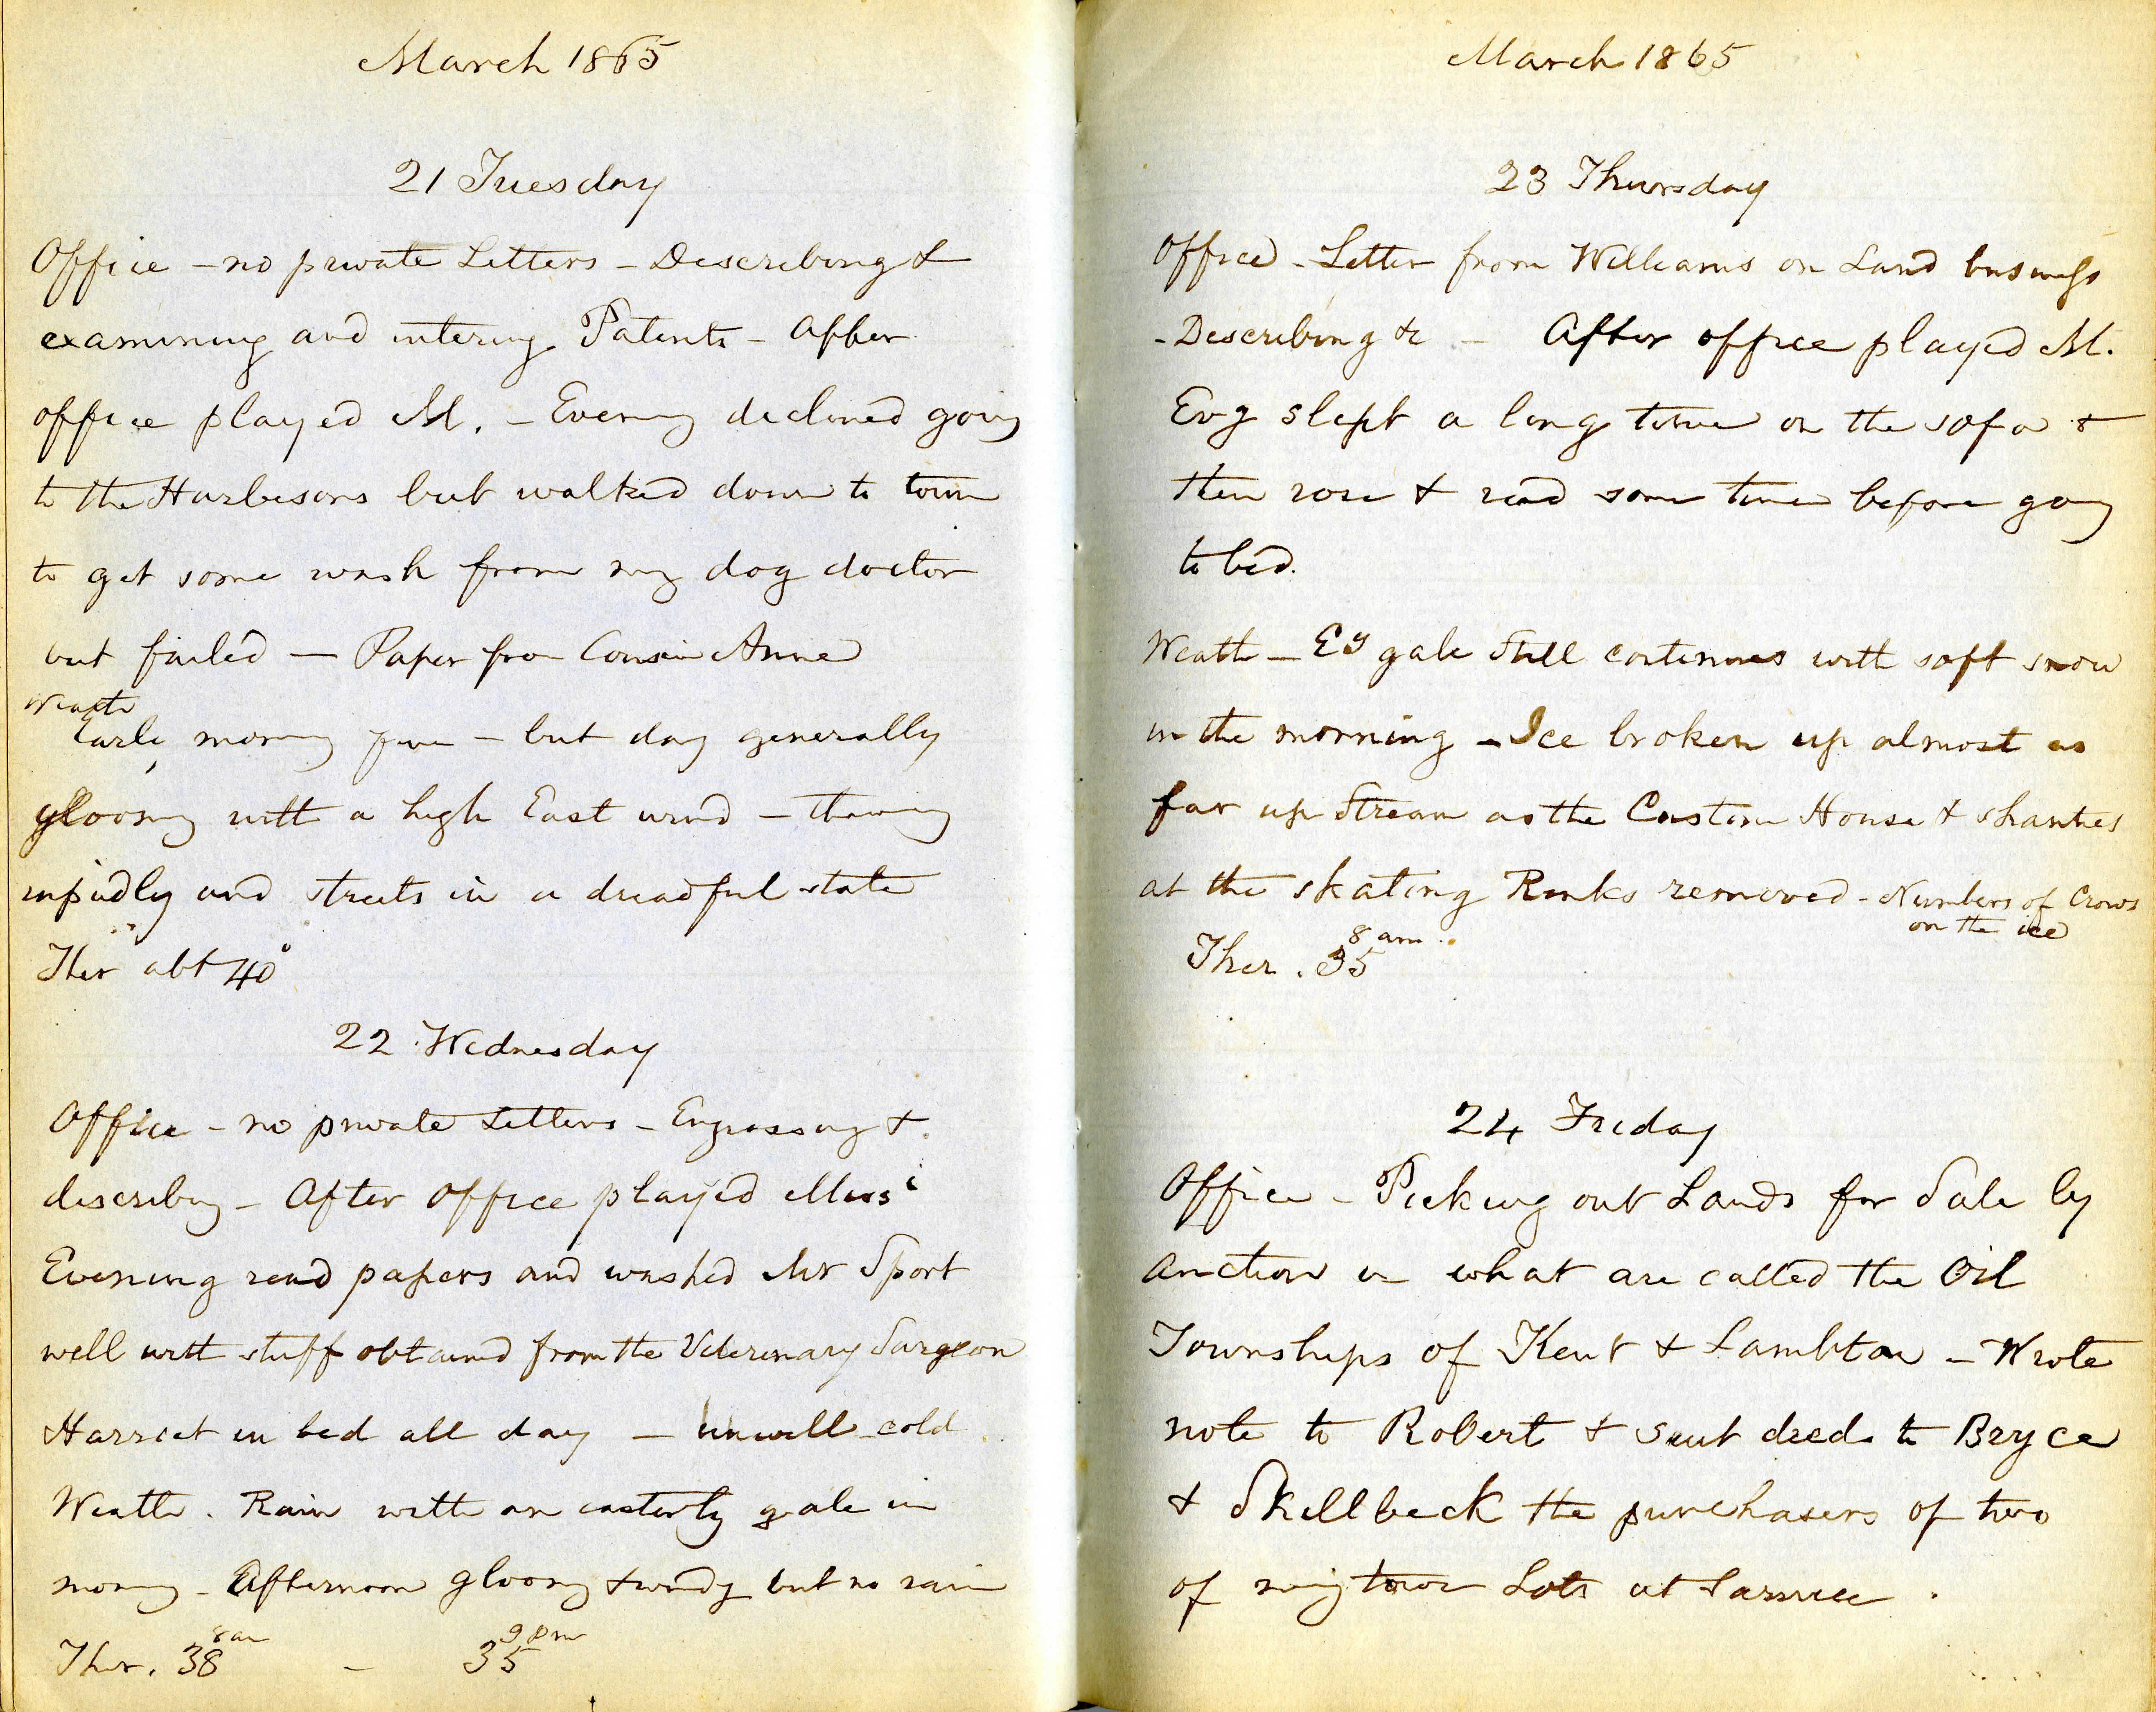 March 1865
21 Tuesday
Office - no private Letters - Describing &
examining and entering Patents - After
office played M. - Evening declined going
to the Harbesons but walked down to town
to get some wash from my dog doctor
but failed - Paper from Cousin Anne
Weath
Early morning fine - but day generally
gloomy with a high East wind - thawing
rapidly and streets in a dreadful state
Ther abt 40°
22 Wednesday
Office - no private Letters - Engrossing &
describing - After office played Musc
Evening read papers and washed Mr Sport
well with stuff obtained from the Veterinary Surgeon
Harriet in bed all day - unwell - cold
Weath. Rain with an easterly gale in
morng - Afternoon gloomy & windy but no rain
8 am 9 pm
Ther. 38 - 35
March 1865
23 Thursday
Office - Letter from Williams on Land business
- Describing &c - After office played M.
Evg slept a long time on the sofa &
then rose & read some time before going
to bed.
Weath - Ey gale still continues with soft snow
in the morning - Ice broken up almost as
far up Stream as the Custom House & shanties
at the skating Rinks removed - Numbers of Crows
on the ice
8 am
Ther. 35
24 Friday
Office - Picking out Lands for Sale by
Auction in what are called the Oil
Townships of Kent & Lambton - Wrote
note to Robert & sent deeds to Bryce
& Skellbeck the purchasers of two
of my town Lots at Sarnia.